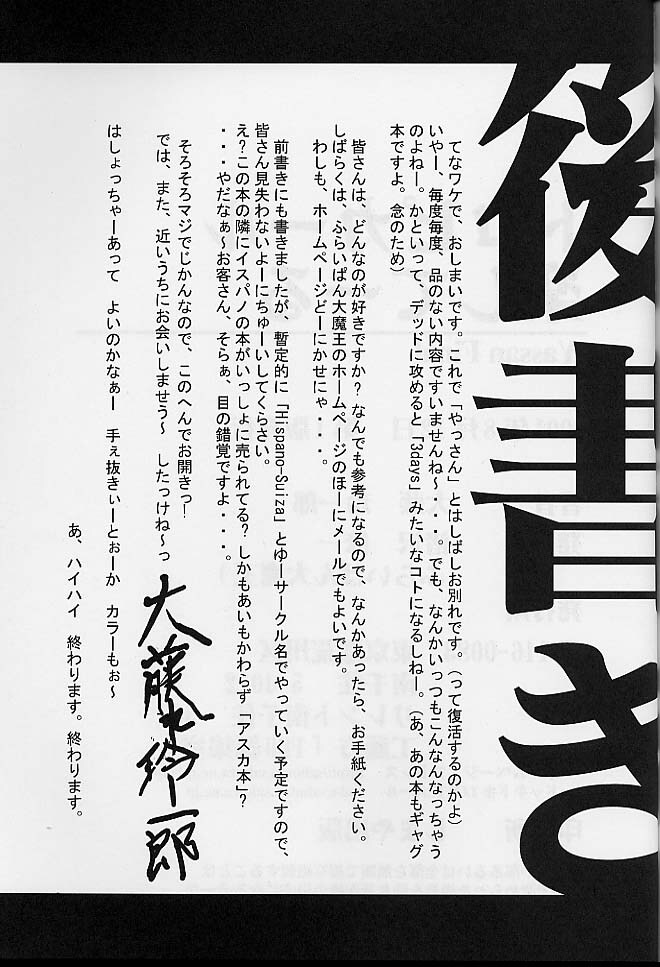 後書き
てなワケで、おしまいです。これで「やっさん」とはしばしお別れです。(って復活するのかよ)
いやー、毎度毎度、品のない内容ですいませんね~・・・。でも、なんかいっつもこんなんなっちゃう
のよねー。かといって、デッドに攻めると「3days」みたいなコトになるしねー。(あ、あの本もギャグ
本ですよ。念のため)
皆さんは、どんなのが好きですか?なんでも参考になるので、なんかあったら、お手紙ください。
しばらくは、ふらいぱん大魔王のホームページのほーにメールでもよいです。
わしも、ホームページどーにかせにゃ・・・。
前書きにも書きまたが、暫定的に「Hispano-Suiza」とゆーサークル名でやっていく予定ですので、
皆さん見失わないよーにちゅーいしてくらさい。
え?この本の隣にイスパノの本がいっしょに売られてる?しかもあいもかわらず「アスカ本」?
・・・やだなぁ~お客さん、そらぁ、目の錯覚ですよ・・・。
そろそろマジでじかんなので、このへんでお開きっ!
では、また、近いうちにお会いしませう~　したっけね~っ
大藤玲一郎
はしょっちゃーあって　よいのかなぁー　手ぇ抜きぃーとぉーか　カラーもぉ~
あ、ハイハイ　終わります。終わります。